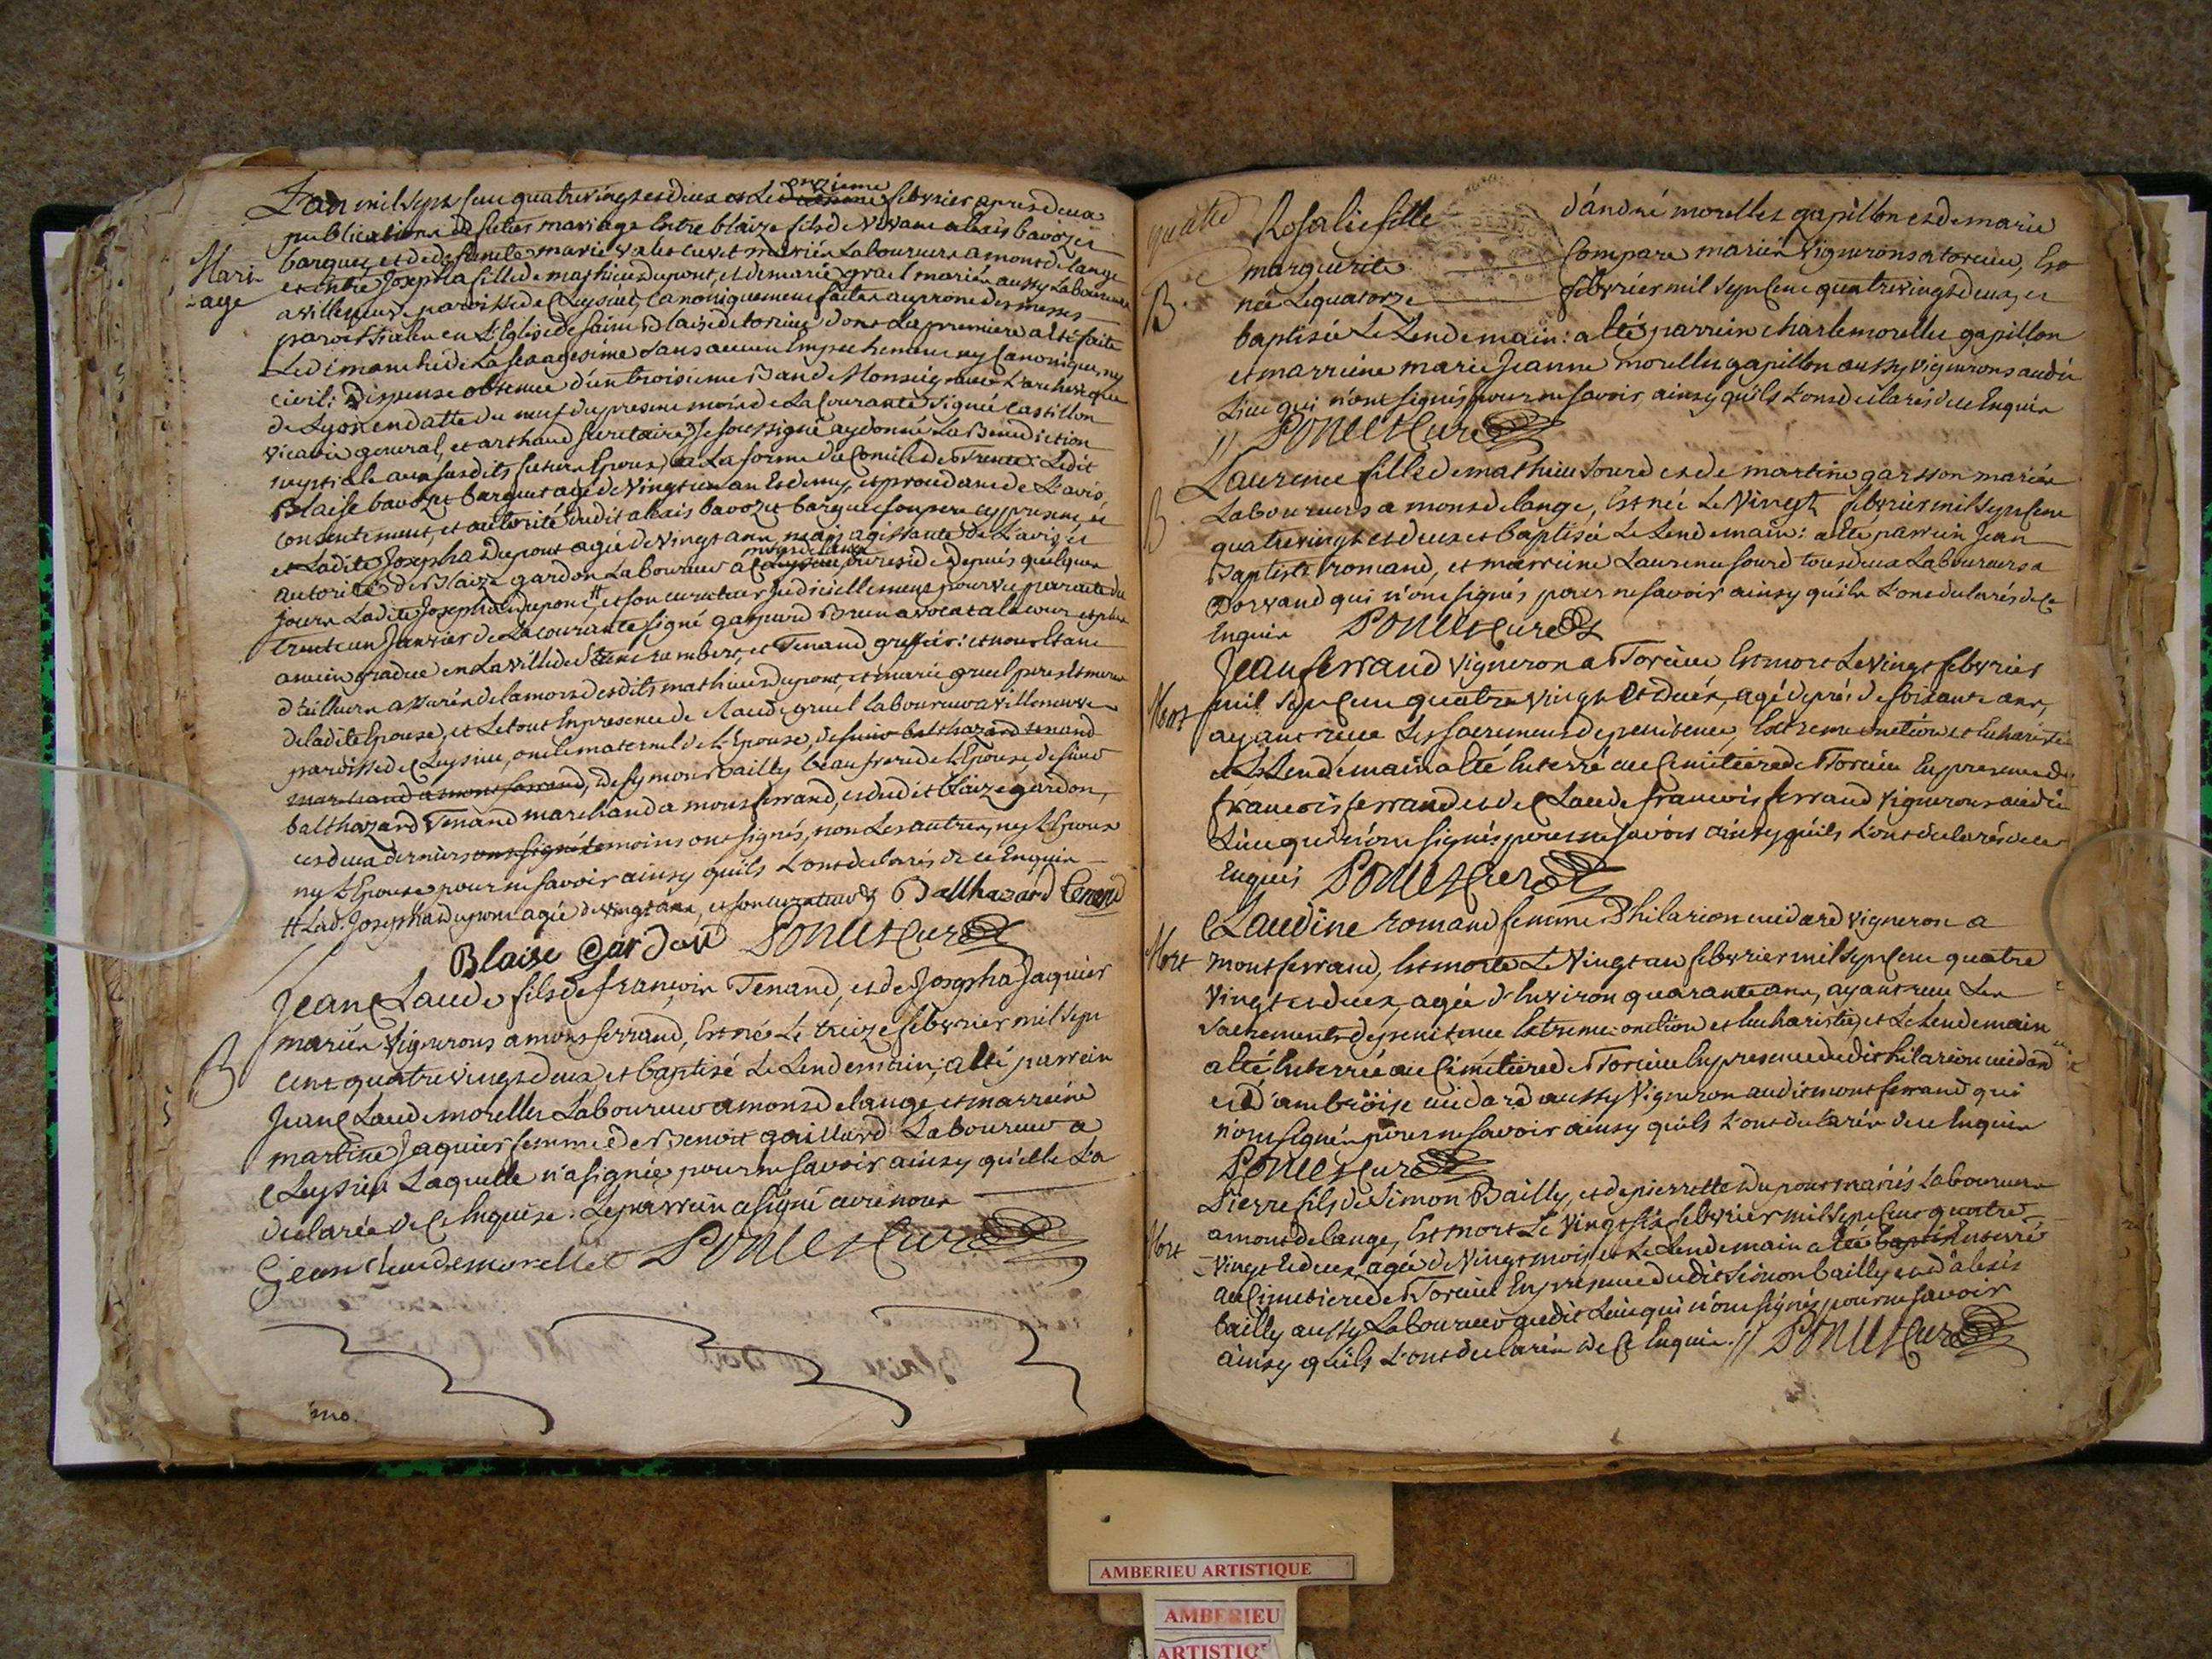 L'an mil sept cent quatrevingt et deux et Le onzieme febvrier apres deux
publications de futur mariage Entre blaize fils de vivant alexis bavozet
barquet et de defunte marie valet cuvet mariés Laboureurs a mont de lange
et entre Josepha fille de mathieu dupont, et de marie gruel mariés aussy Laboureurs
a villeneuve paroisse de Cleysieu, Canoniquement faites au prone des messes
paroissiales en L'Eglise de saint Blaise de torcieu dont La premiere a Eté faite
Le dimanche de La sexagesime sans aucun Empechement ny Canonique, ny
civil: Dispense obtenue d'un troisieme Ban de Monseigneur L'archeveque
de Lyon en datte du neuf du present mois de La Courante signée Castillon
vicaire general, et arthaud secretaire, Je soussigné ay donné La Benediction
nuptiale aux susdits futurs Epoux, a La forme du Concile de Trente: Ledit
Blaise bavozet barquet agé de Vingt un an Et demy, et procedant de L'avis,
consentement, et autorité dudit alexis bavozet barquet son pere cy present, et
et Ladite Josepha dupont agée de Vingt ans, mais agissante de L'avis, et
mont de lange
autorité de Blaize gardon Laboureur a Cleysieu, ou reside depuis quelques
jours Ladite Josepha dupont, et son curateur judiciellement pourvu par acte du
trente un janvier de La courante signé gaspard Brun avocat a la cour et plus
ancien gradué en La ville de st rambert, et Tenand greffier: et nous Etant
d'ailleurs assurés de la mort desdits mathieu dupont, et marie gruel pere Et mere
de ladite Epouse, et Le tout En presence de claude gruel Laboureur a villeneuve
paroisse de Cleysieu, oncle maternel de L'Epouse, de sieur balthazard tenand
marchand a montferrand, de symon Bailly beau frere de L'Epouse de sieur
balthazard Tenand marchand a montferrand, et dudit blaize gardon,
ces deux derniers ont signé temoins ont signés, non Les autres, ny L'Epoux
ny L'Epouse pour ne savoir ainsy qu'ils L'ont declarés de ce Enquis
# Lad. Josepha dupont agée de vingt ans, et son curateur Balthazard Tenand
Blaise Gardon PONCET Curé
Mari-
-age
Jean Claude fils de françois Tenand, et de Josepha Jaquier
mariés Vignerons a montferrand, Est né Le treize febvrier mil sept
cent quatrevingt deux, et baptisé Le Lendemain; a Eté parrein
Jean Claude morellet Laboureur a mont de lange et marreine
martine Jaquier femme de Benoit gaillard Laboureur a
Cleysieu Laquelle n'a signée pour ne savoir ainsy qu'elle L'a
declarée de Ce Enquise. Le parrein a signé avec nous
Jean claude morellet PONCET Curé
B
quatre
Rosalie fille d'andré morellet gapillon et de marie
marguerite Compare mariés Vignerons a torcieu, Est
née Le quatorze febvrier mil sept Cent quatrevingt deux, et
baptisée Le Lendemain: a Eté parrein charle morellet gapillon
et marreine marie Jeanne morellet gapillon aussy vignerons audit
Lieu qui n'ont signés pour ne savoir ainsy qu'ils L'ont declarés de ce Enquis
PONCET Curé
B.
Laurence fille de mathieu sourd et de martine garsson mariés
Laboureurs a mont de lange, Est née Le Vingt febvrier mil sept Cent
quatrevingt et deux et baptisée Le Lendemain: a Eté parrein Jean
Baptiste romand, et marreine Laurence sourd tous deux Laboureurs a
Dorvand qui n'ont signés pour ne savoir ainsy qu'ils L'ont declarés de Ce
Enquis PONCET Curé
B.
Jean ferrand Vigneron a Torcieu Est mort Le Vingt febvrier
mil sept Cent quatre Vingt Et deux, agé de pres de soixante ans,
ayant reçu Les sacrements de penitence, Extreme onction et Euchariste
et Le Lendemain a Eté Enterré au Cimetiere de Torcieu En presence de
françois ferrand et de Claude françois ferrand Vignerons audit
Lieu qui n'ont signés pour ne savoir ainsy qu'ils L'ont declarés de ce
Enquis PONCET Curé
Mort
Claudine romand femme d'hilarion cuidard vigneron a
montferrand, Est morte Le Vingt un febvrier mil sept Cent quatre
Vingt et deux, agée d'Environ quarante ans, ayant reçu Les
sacrements de penitence Extreme-onction et Eucharistie, et Le Lendemain
a Eté Enterrée au Cimetiere de Torcieu En presence dudit hilarion cuidard
et d'ambroise cuidard aussy Vigneron audit montferrand qui
n'ont signés pour ne savoir ainsy qu'ils L'ont declarés de ce Enquis
PONCET Curé
Mort
Pierre fils de Simon Bailly, et de pierrette dupont mariés Laboureurs
a mont de lange, Est mort Le Vingt six febvrier mil sept Cent quatre
Vingt Et deux, agé de Vingt mois, et Le Lendemain a Eté baptisé Enterré
au Cimetiere de Torcieu En presence dudit Simon bailly et d'alexis
bailly aussy Laboureur audit Lieu qui n'ont signés pour ne savoir
ainsy qu'ils L'ont declarés de Ce Enquis. // PONCET Curé
Mort
AMBERIEU ARTISTIQUE
AMBERIEU
ARTISTIQUE